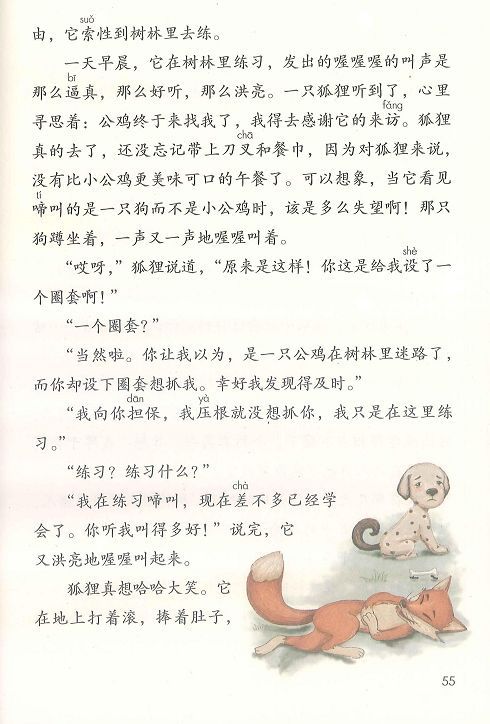 suǒ
由，它索性到树林里去练。
一天早晨，它在树林里练习，发出的喔喔喔的叫声是
bī
那么逼真，那么好听，那么洪亮。一只狐狸听到了，心里
fǎng
寻思着：公鸡终于来找我了，我得去感谢它的来访。狐狸
chā
真的去了，还没忘记带上刀叉和餐巾，因为对狐狸来说，
没有比小公鸡更美味可口的午餐了。可以想象，当它看见
tí
啼叫的是一只狗而不是小公鸡时，该是多么失望啊！那只
狗蹲坐着，一声又一声地喔喔叫着。
shè
“哎呀，”狐狸说道，“原来是这样！你这是给我设了一
个圈套啊！”
“一个圈套？”
“当然啦。你让我以为，是一只公鸡在树林里迷路了，
而你却设下圈套想抓我。幸好我发现得及时。”
dān yà
“我向你担保，我压根就没想抓你，我只是在这里练
习。”
“练习？练习什么？”
chà
“我在练习啼叫，现在差不多已经学
会了。你听我叫得多好！”说完，它
又洪亮地喔喔叫起来。
狐狸真想哈哈大笑。它
在地上打着滚，捧着肚子，
55